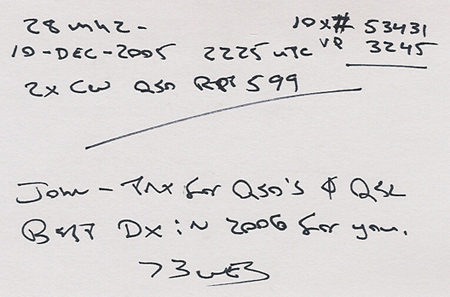 28 mhz -
10-X# 53431
10-DEC-2005 2225 UTC VP 3245
2x CW QSO RPT 599
John - TNX for QSO's & QSL
Best DX in 2006 for you.
73